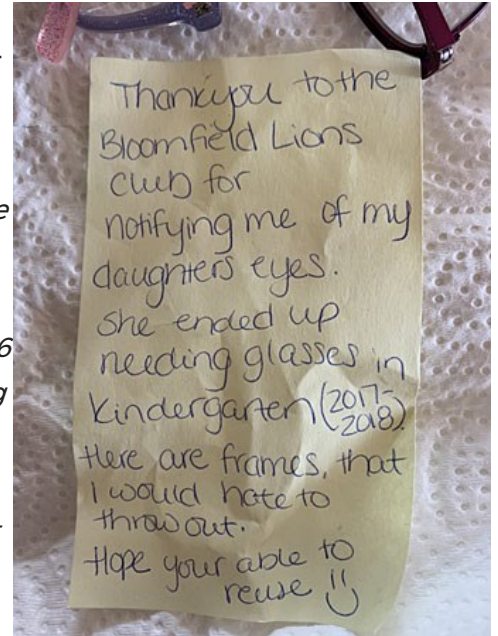 Thankyou to the
Bloomfield Lions
Club for
notifying me of my
daughters eyes.
She ended up
needing glasses in
Kindergarten (2017-
2018).
Here are frames, that
I would hate to
throw out.
Hope your able to
reuse